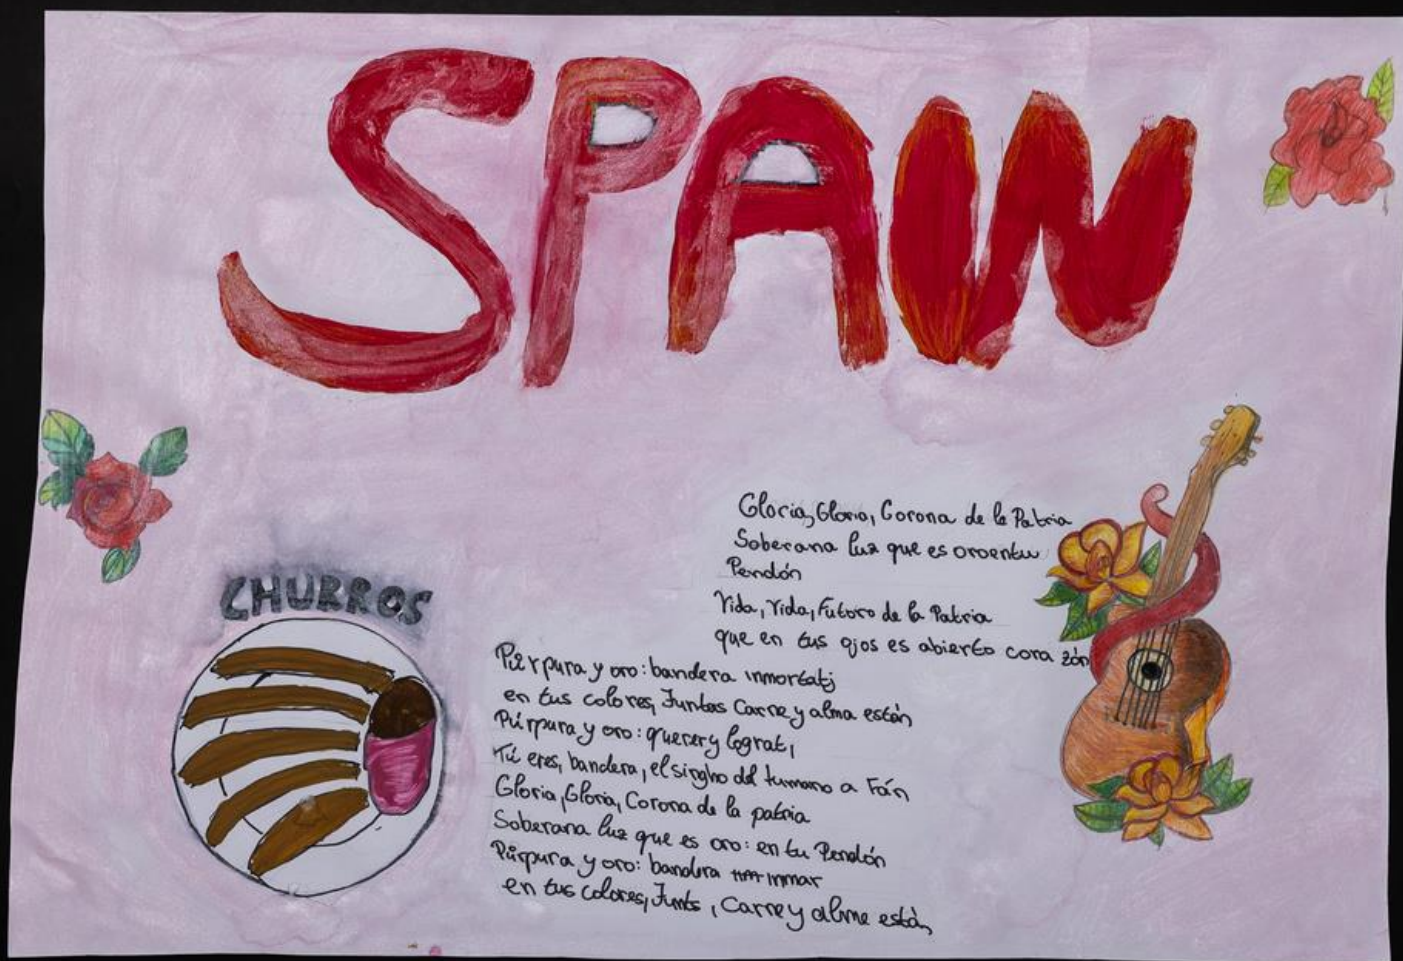 SPAIN
Gloria, Gloria, Corona de la Patria
Soberana luz que es oroentu
Pendón
Vida, Vida, Futoro de la Patria
que en tus ojos es abierto cora zón
CHURROS
Púrpura y oro: bandera inmortatj
en tus colores, Juntas Carne y alma están
Púrpura y oro: querery lograt,
Tú eres, bandera, el singho del tumano a Fán
Gloria, Gloria, Corona de la patria
Soberana luz que es oro: en tu Pendón
Púrpura y oro: bandera inmar
en tus colores, Junts, Carne y alme están,